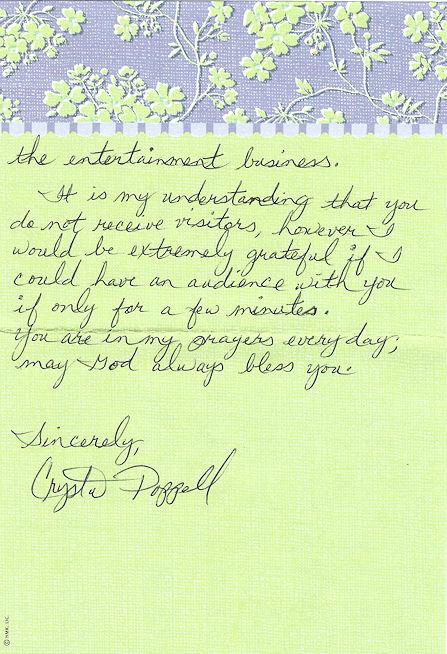 the entertainment business.
It is my understanding that you
do not receive visitors, however I
would be extremely grateful if I
could have an audience with you
if only for a few minutes.
You are in my prayers everyday;
may God always bless you.
Sincerely,
Crysta Poppell
© HMK. LIC.